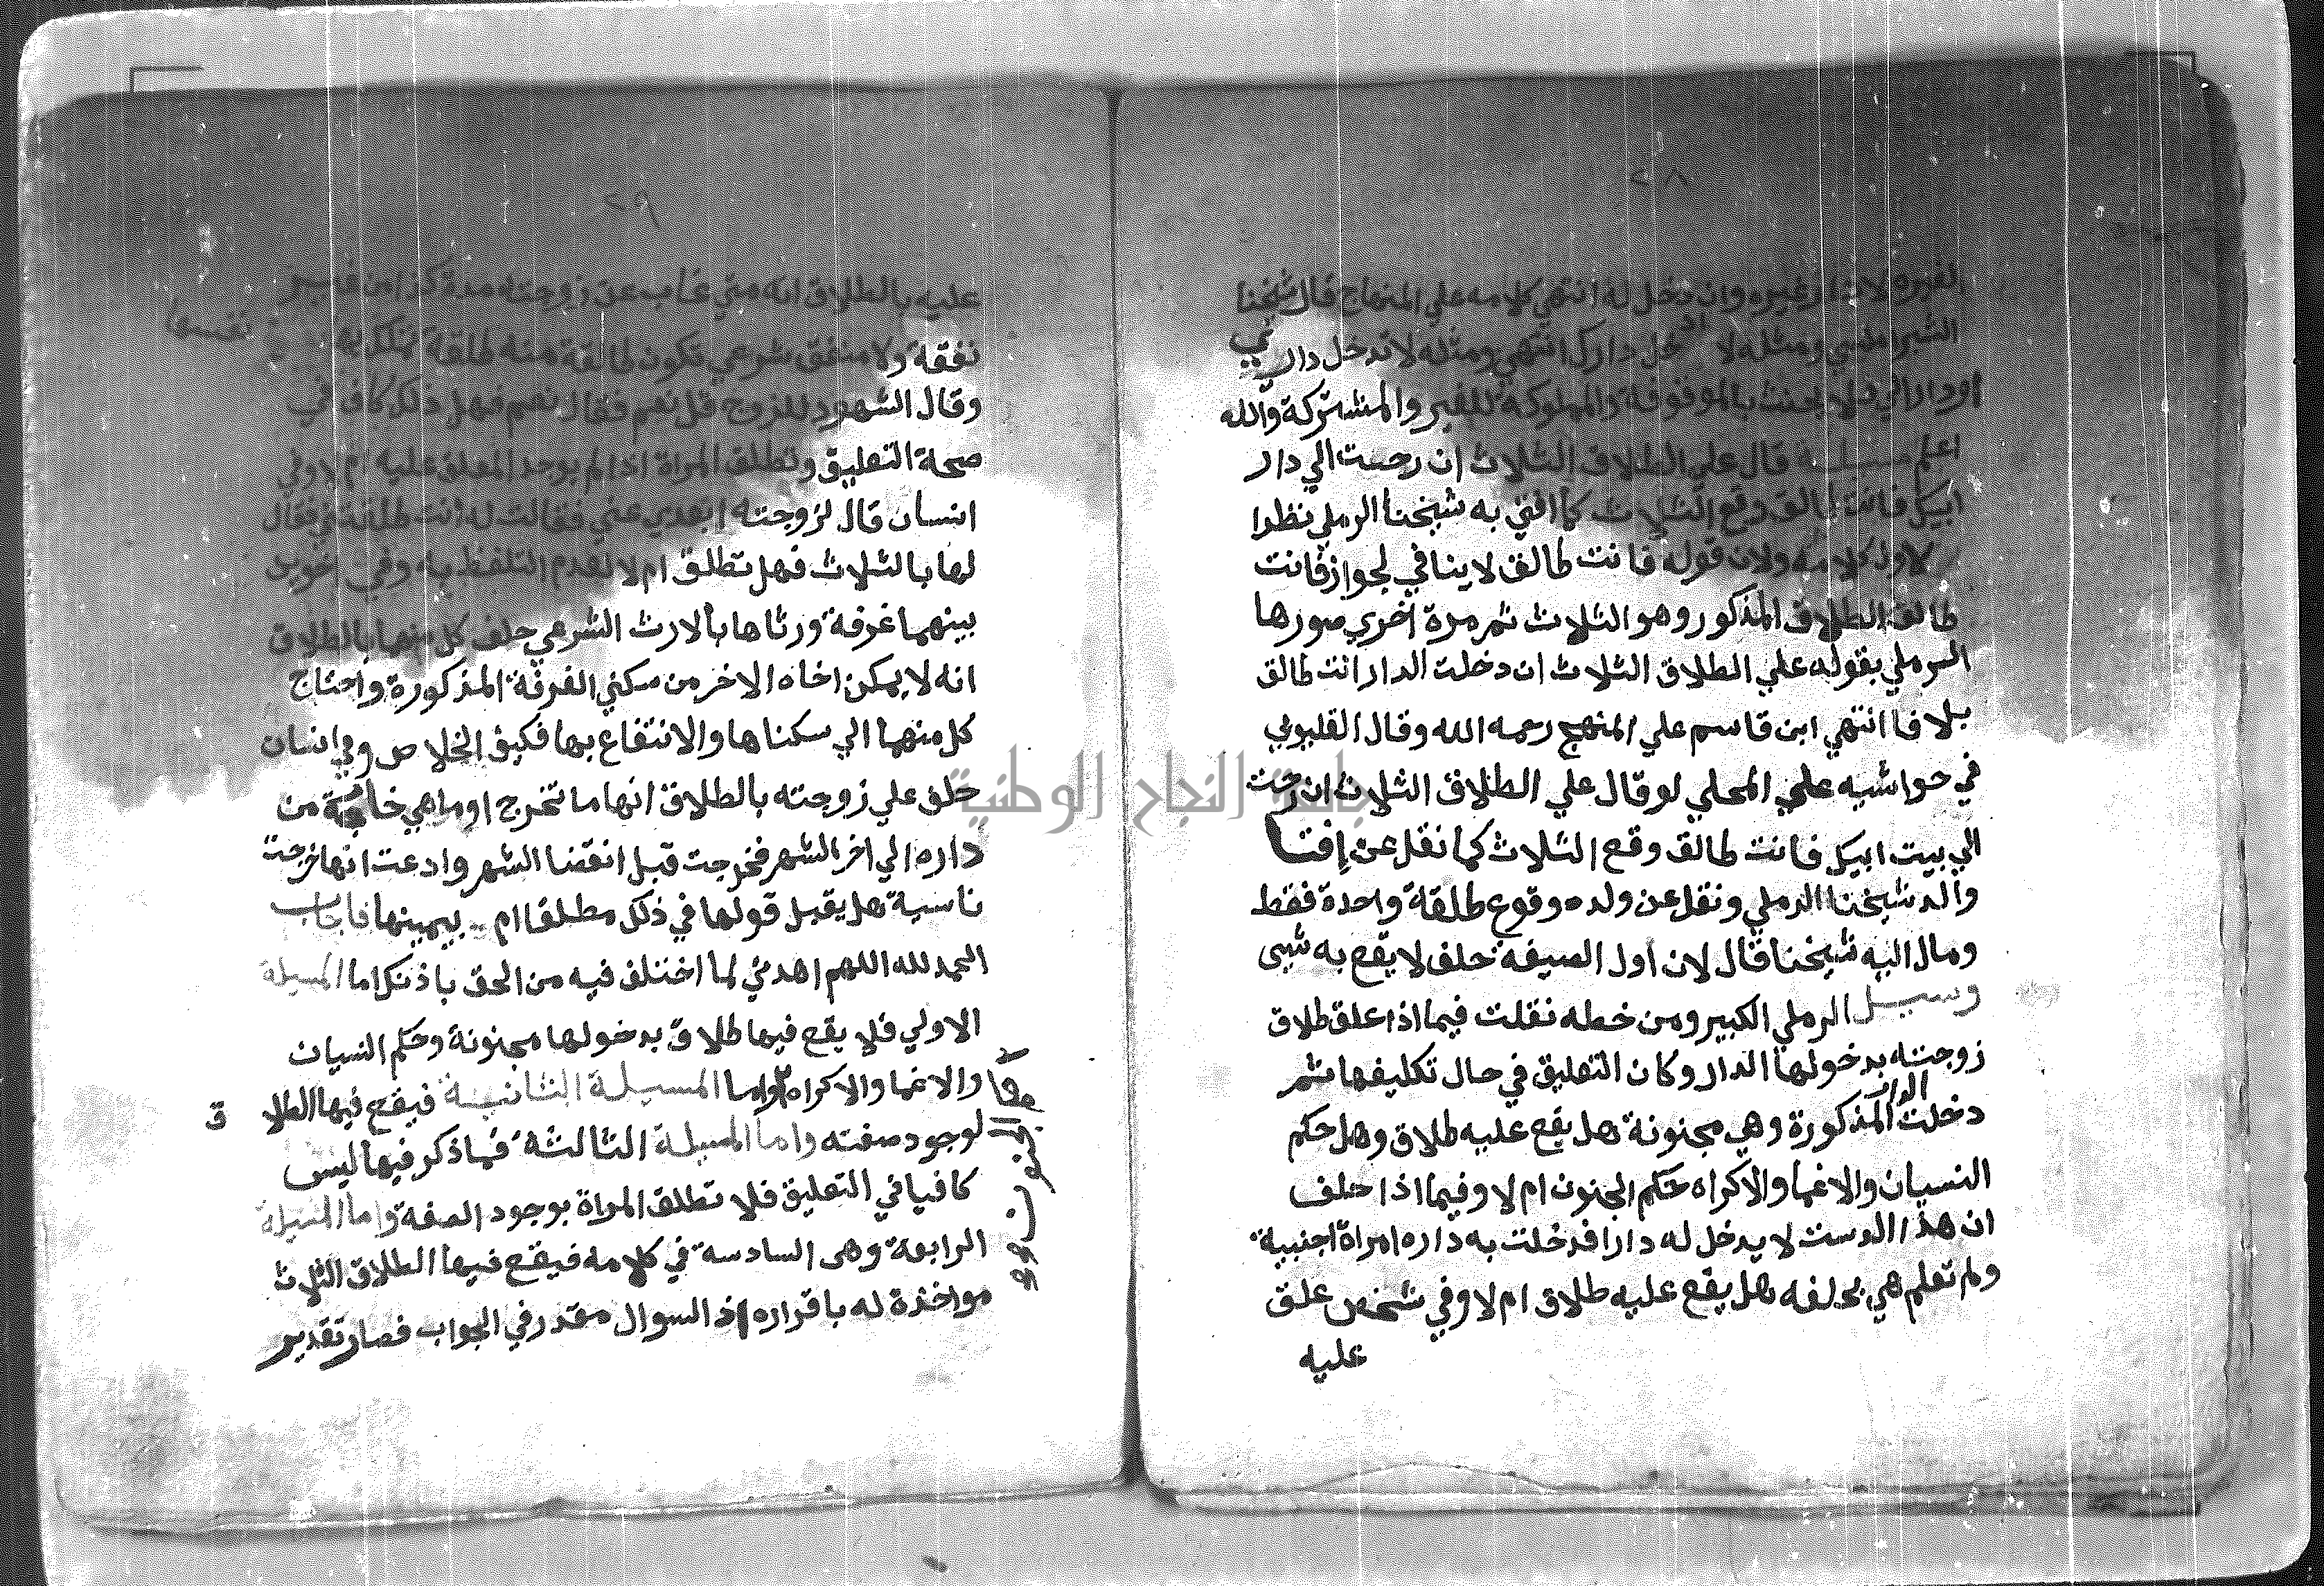 ٢٨
لغيره وان دخل له انتهي كلامه علي المنهاج قال شيخنا
الشبرملسي ومثله لا ادخل دارك انتهي ومثله لا تدخل داري
بالموقوفة والمملوكة للغير والمشتركة والله
اعلم مسيلة قال علي الطلاق الثلاث ان رحت الي دار
ابيك فانت طالق وقع الثلاث كما افتي به شيخنا الرملي نظرا
لاول كلامه ولان قوله فانت طالق لا ينافي لجواز فانت
طالق الطلاق المذكور وهو الثلاث ثم مرة اخري صورها
الرملي بقوله علي الطلاق الثلاث ان دخلت الدار انت طالق
بلا فا انتهي ابن قاسم علي المنهج رحمه الله وقال القليوبي
في حواشيه علي المحلي لو قال علي الطلاق الثلاث ان رحت
الي بيت ابيك فانت طالق وقع الثلاث كما نقل عن افتا
والد شيخنا الرملي ونقل عن ولده وقوع طلقة واحدة فقط
ومال اليه شيخنا قال لان اول الصيغة حلف لا يقع به شيى
وسيل الرملي الكبير ومن خطه نقلت فيما اذا علق طلاق
زوجته بدخولها الدار وكان التعليق في حال تكليفها ثم
دخلت الدار المذكورة وهي مجنونة هل يقع عليه طلاق وهل حكم
النسيان والاغما والاكراه حكم الجنون ام لا وفيما اذا حلف
ان هذا الدست لا يدخل له دارا فدخلت به داره امراة اجنبية
ولم تعلم هي بحلفه هل يقع عليه طلاق ام لا وفي شخص علق
عليه
٢٩
عليه بالطلاق انه متي غاب عن زوجته مدة كذا من غير
نفقة ولا منفق شرعي تكون طالقة منه طلقة تملك بها نفسها
وقال الشهود للزوج قل نعم فقال نعم فهل ذلك كاف في
صحة التعليق وتطلق المراة اذا لم يوجد المعلق عليه ام لا وفي
انسان قال لزوجته ابعدي عني فقالت له انت طلقتني فقال
لها بالثلاث فهل تطلق ام لا لعدم التلفظ به وفي اخوين
بينهما غرفة ورثاها بالارث الشرعي حلف كل منهما بالطلاق
انه لا يمكن اخاه الاخر من سكني الغرفة المذكورة واحتاج
كل منهما الي سكناها والانتفاع بها فكيف الخلاص وفي انسان
حلف علي زوجته بالطلاق انها ما تخرج او ما هي خارجة من
داره الي اخر الشهر فخرجت قبل انقضا الشهر وادعت انها خرجت
ناسية هل يقبل قولها في ذلك مطلقا ام بيمينها فاجاب
الحمد لله اللهم اهدني لما اختلف فيه من الحق باذنك اما المسيلة
الاولي فلا يقع فيها طلاق بدخولها مجنونة وحكم النسيان
والاغما والاكراه واما المسيلة الثانية فيقع فيها الطلاق
لوجود صفته واما المسيلة الثالثة فما ذكر فيها ليس
كافيا في التعليق فلا تطلق المراة بوجود الصفة واما المسيلة
الرابعة وهى السادسة في كلامه فيقع فيها الطلاق الثلاث
مواخذة له باقراره اذ السوال مقدر في الجواب فصار تقدير
جامعة النجاح الوطنية